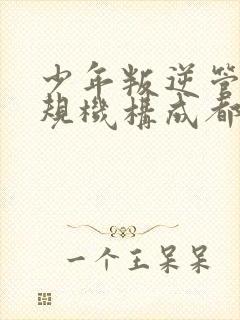 少年叛逆管
規機構成都
一个王呆呆